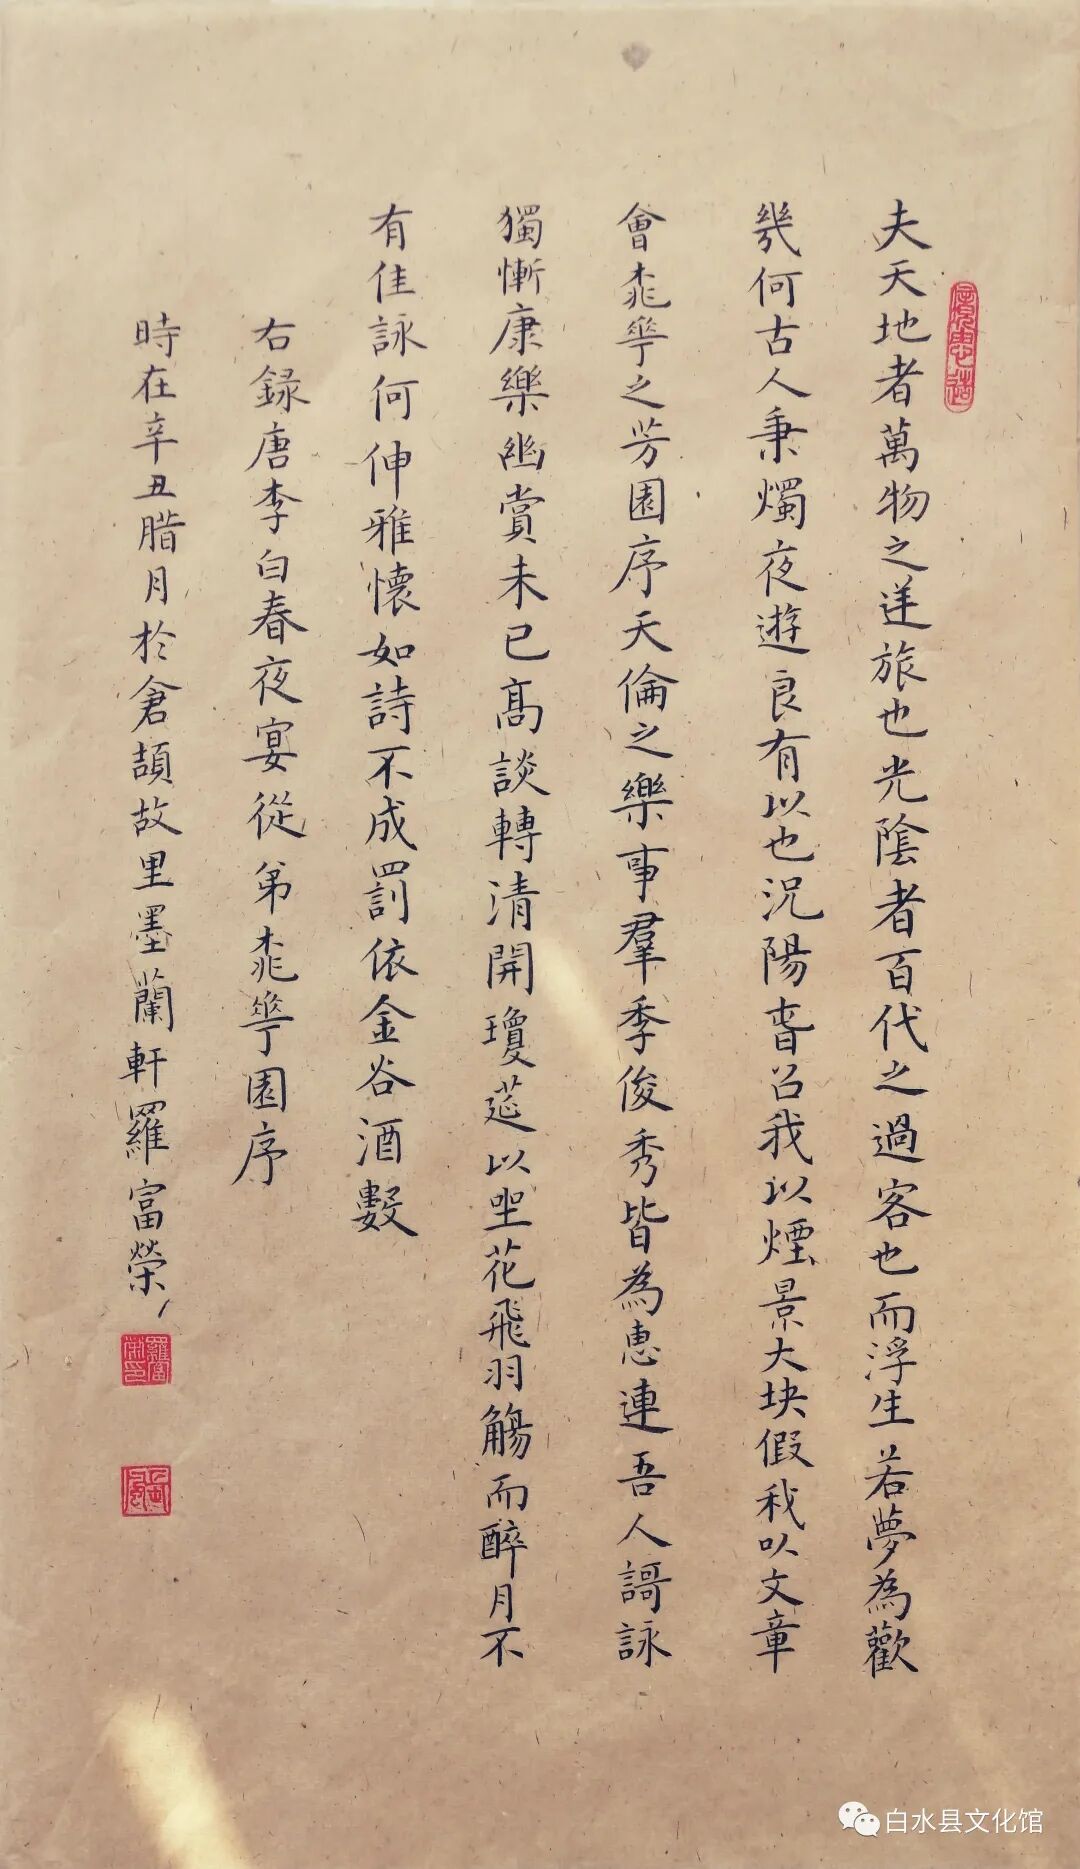 夫天地者萬物之逆旅也光陰者百代之過客也而浮生若夢為歡
幾何古人秉燭夜遊良有以也況陽春召我以煙景大块假我以文章
會桃華之芳園序天倫之樂事羣季俊秀皆為惠連吾人謌詠
獨慚康樂幽賞未已高談轉清開瓊莚以坐花飛羽觴而醉月不
有佳詠何伸雅懷如詩不成罰依金谷酒數
右録唐李白春夜宴從弟桃華園序
時在辛丑腊月於倉頡故里墨蘭軒羅富榮
羅富榮印
白水县文化馆